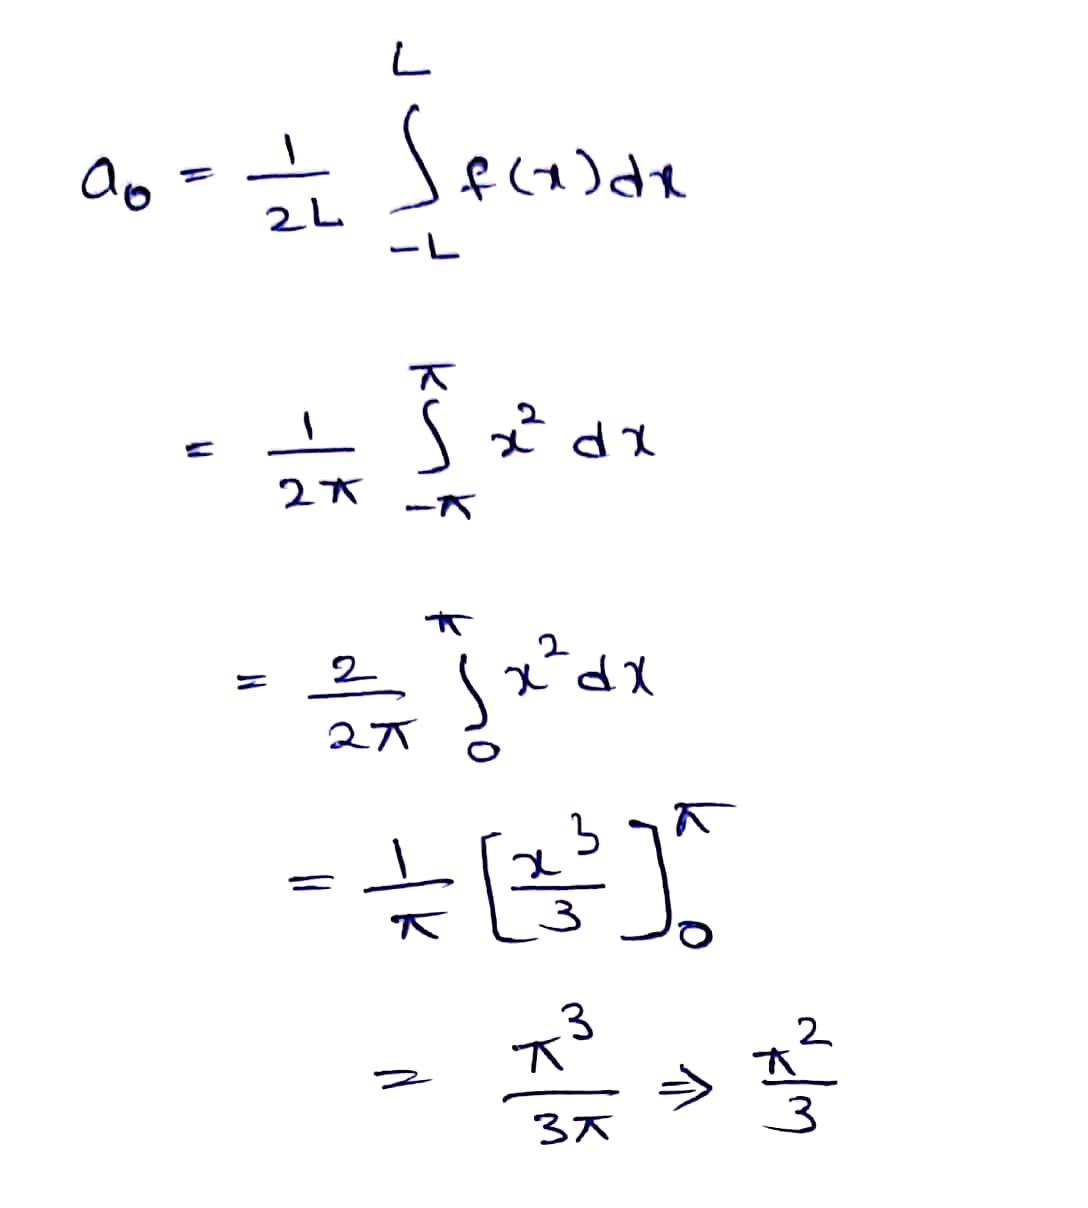 a₀ = 1/2L ∫_{-L}^{L} f(x)dx
= 1/2π ∫_{-π}^{π} x² dx
= 2/2π ∫_{0}^{π} x² dx
= 1/π [x³/3]_{0}^{π}
= π³/3π ⇒ π²/3